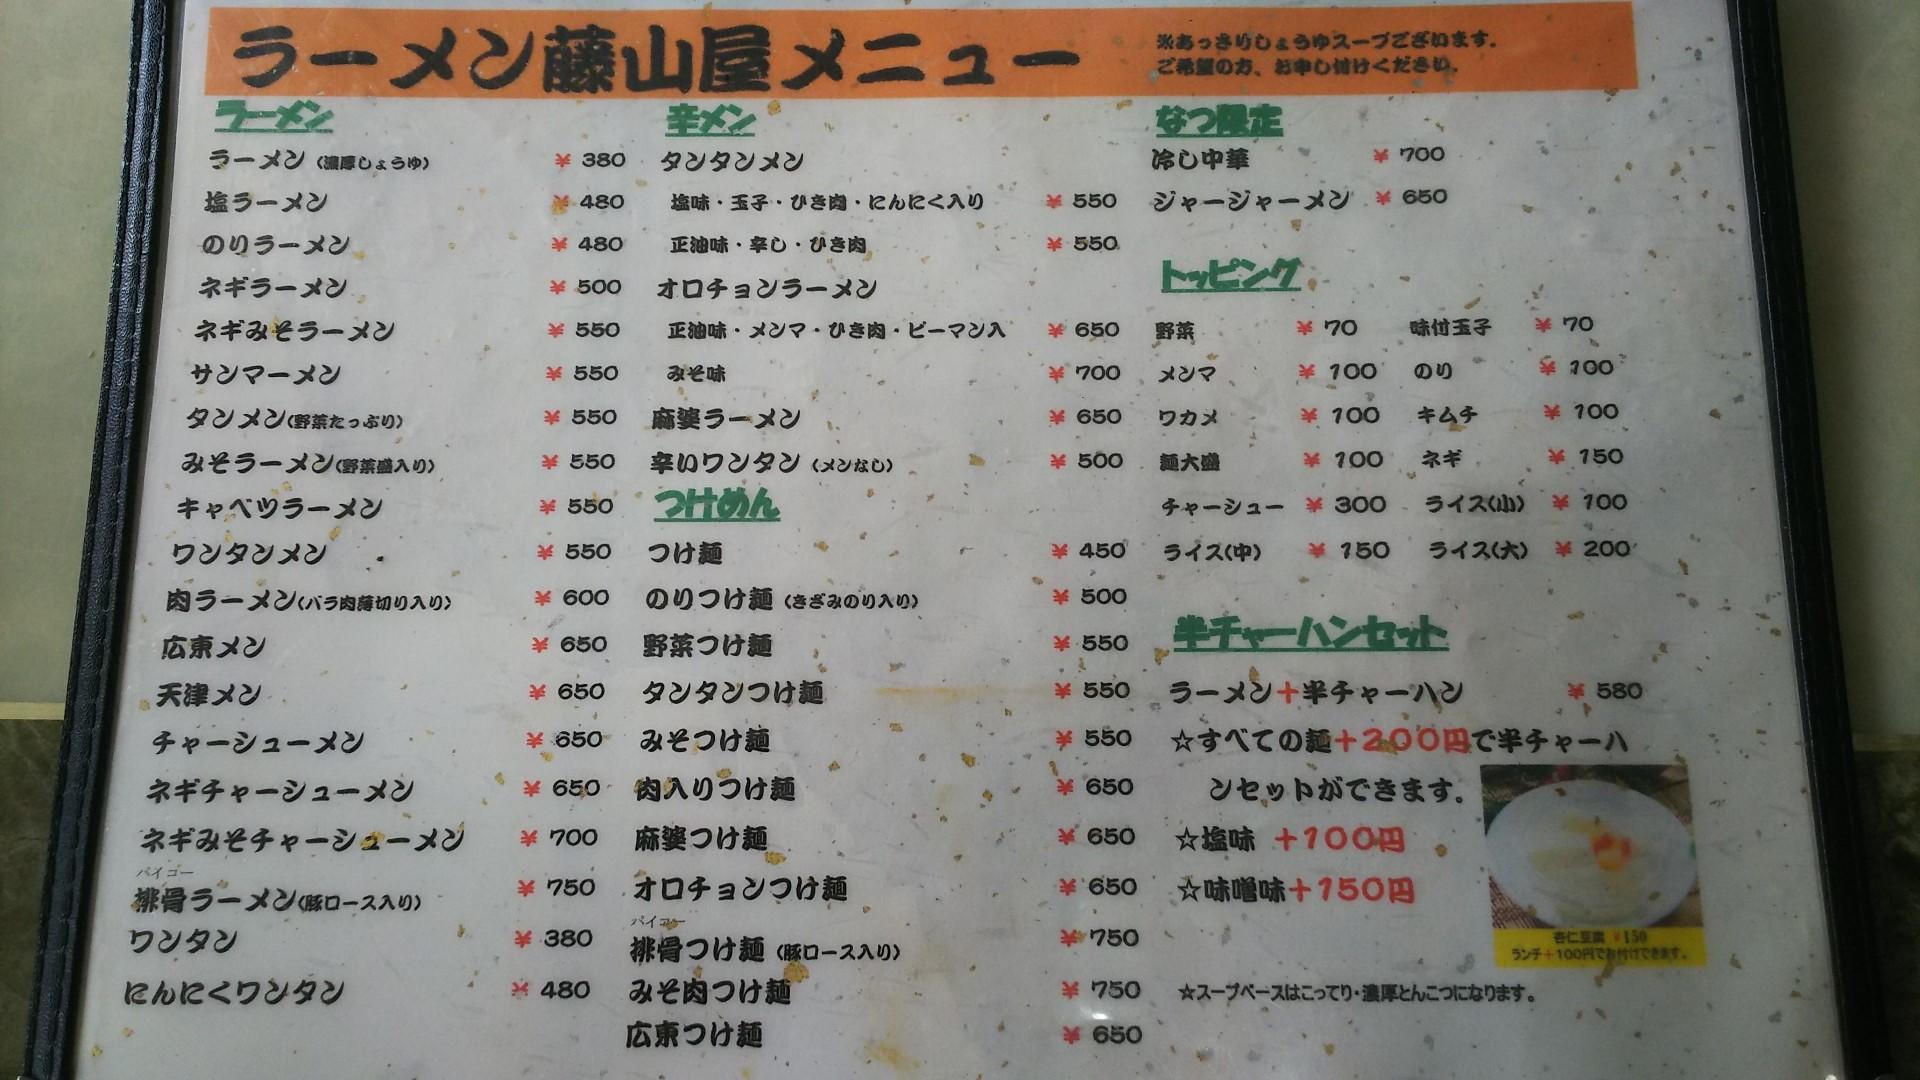 ラーメン藤山屋メニュー
※あっさりしょうゆスープございます。
ご希望の方、お申し付けください。
ラーメン
ラーメン(濃厚しょうゆ) ¥ 380
塩ラーメン ¥ 480
のりラーメン ¥ 480
ネギラーメン ¥ 500
ネギみそラーメン ¥ 550
サンマーメン ¥ 550
タンメン(野菜たっぷり) ¥ 550
みそラーメン(野菜盛入り) ¥ 550
キャベツラーメン ¥ 550
ワンタンメン ¥ 550
肉ラーメン(バラ肉薄切り入り) ¥ 600
広東メン ¥ 650
天津メン ¥ 650
チャーシューメン ¥ 650
ネギチャーシューメン ¥ 650
ネギみそチャーシューメン ¥ 700
パイゴー
排骨ラーメン(豚ロース入り) ¥ 750
ワンタン ¥ 380
にんにくワンタン ¥ 480
辛メン
タンタンメン
塩味・玉子・ひき肉・にんにく入り ¥ 550
正油味・辛し・ひき肉 ¥ 550
オロチョンラーメン
正油味・メンマ・ひき肉・ピーマン入 ¥ 650
みそ味 ¥ 700
麻婆ラーメン ¥ 650
辛いワンタン(メンなし) ¥ 500
つけめん
つけ麺 ¥ 450
のりつけ麺(きざみのり入り) ¥ 500
野菜つけ麺 ¥ 550
タンタンつけ麺 ¥ 550
みそつけ麺 ¥ 550
肉入りつけ麺 ¥ 650
麻婆つけ麺 ¥ 650
オロチョンつけ麺 ¥ 650
パイコー
排骨つけ麺(豚ロース入り) ¥ 750
みそ肉つけ麺 ¥ 750
広東つけ麺 ¥ 650
なつ限定
冷し中華 ¥ 700
ジャージャーメン ¥ 650
トッピング
野菜 ¥ 70 味付玉子 ¥ 70
メンマ ¥ 100 のり ¥ 100
ワカメ ¥ 100 キムチ ¥ 100
麺大盛 ¥ 100 ネギ ¥ 150
チャーシュー ¥ 300 ライス(小) ¥ 100
ライス(中) ¥ 150 ライス(大) ¥ 200
半チャーハンセット
ラーメン+半チャーハン ¥ 580
☆すべての麺+200円で半チャーハ
ンセットができます。
☆塩味 +100円
☆味噌味+150円
杏仁豆腐 ¥150
ランチ+100円でお付けできます。
☆スープベースはこってり・濃厚とんこつになります。